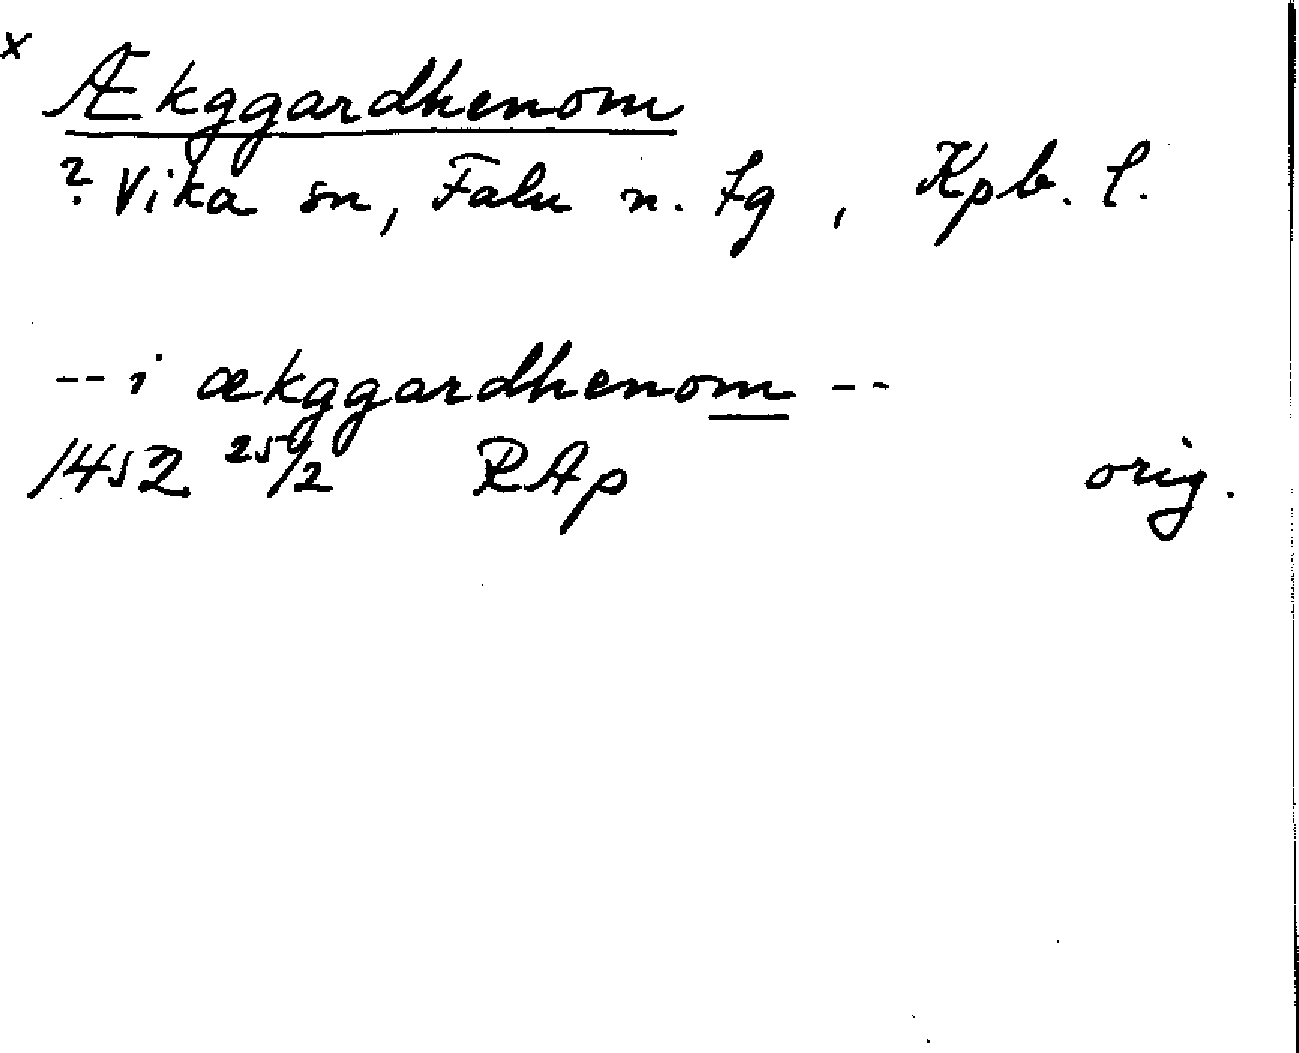 x
Ækggardhenom
? Vika sn, Falu n. fg, Kpb. l.
-- i ækggardhenom --
1452 25/2 RAp orig.